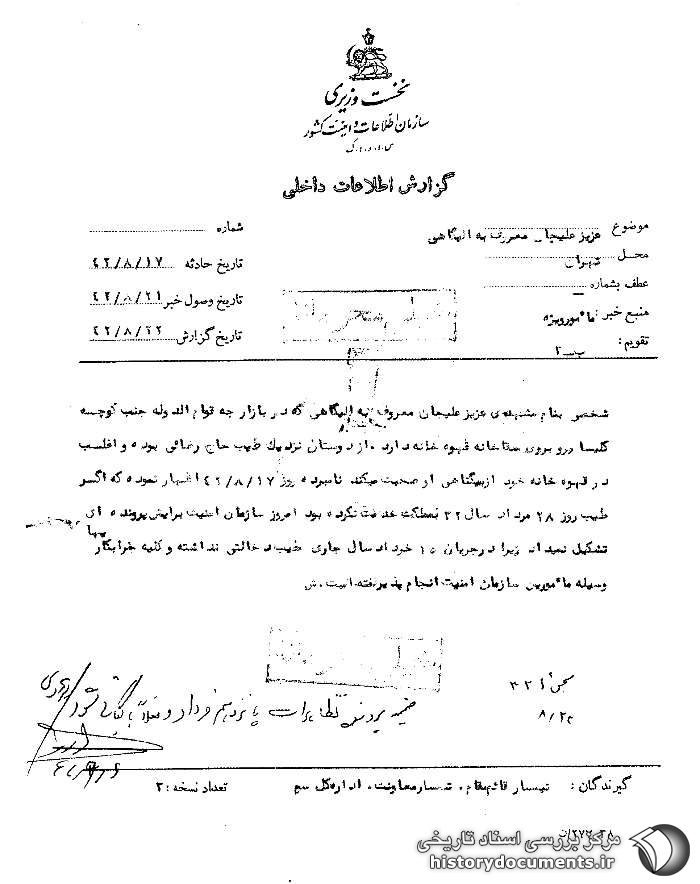 نخست وزیری
سازمان اطلاعات و امنیت کشور
س.ا.و.ا.ک
گزارش اطلاعات داخلی
موضوع عزیز علیجان معروف به الیگاهی
شماره
محل تهران
تاریخ حادثه ۴۲/۸/۱۷
عطف بشماره
تاریخ وصول خبر ۴۲/۸/۲۱
منبع خبر: مأمور ویژه
تاریخ گزارش ۴۲/۸/۲۲
تقویم: ب-۲
شخصی بنام مشهدی عزیز علیجان معروف به الیگاهی که در بازارچه قوام الدوله جنب کوچه
کلیسا روبروی سقاخانه قهوه خانه دارد. از دوستان نزدیک طیب حاج رضائی بوده و اغلب
در قهوه خانه خود از بیگناهی او صحبت میکند نامبرده روز ۴۲/۸/۱۷ اظهار نموده که اگر
طیب روز ۲۸ مرداد سال ۳۲ بمملکت خدمت نکرده بود امروز سازمان امنیت برایش پرونده ای
تشکیل نمیداد زیرا در جریان ۱۵ خرداد سال جاری طیب دخالتی نداشته و کلیه خرابکاریها
وسیله مأمورین سازمان امنیت انجام پذیرفته است. ش
۳۲۱
۸/۲۲
ضمیمه پرونده تظاهرات پانزدهم خرداد و فعلاً بایگانی شود
گیرندگان: تیسار قائم‌مقام، تیسار معاونت، اداره کل سوم
تعداد نسخه: ۳
مرکز بررسی اسناد تاریخی
historydocuments.ir